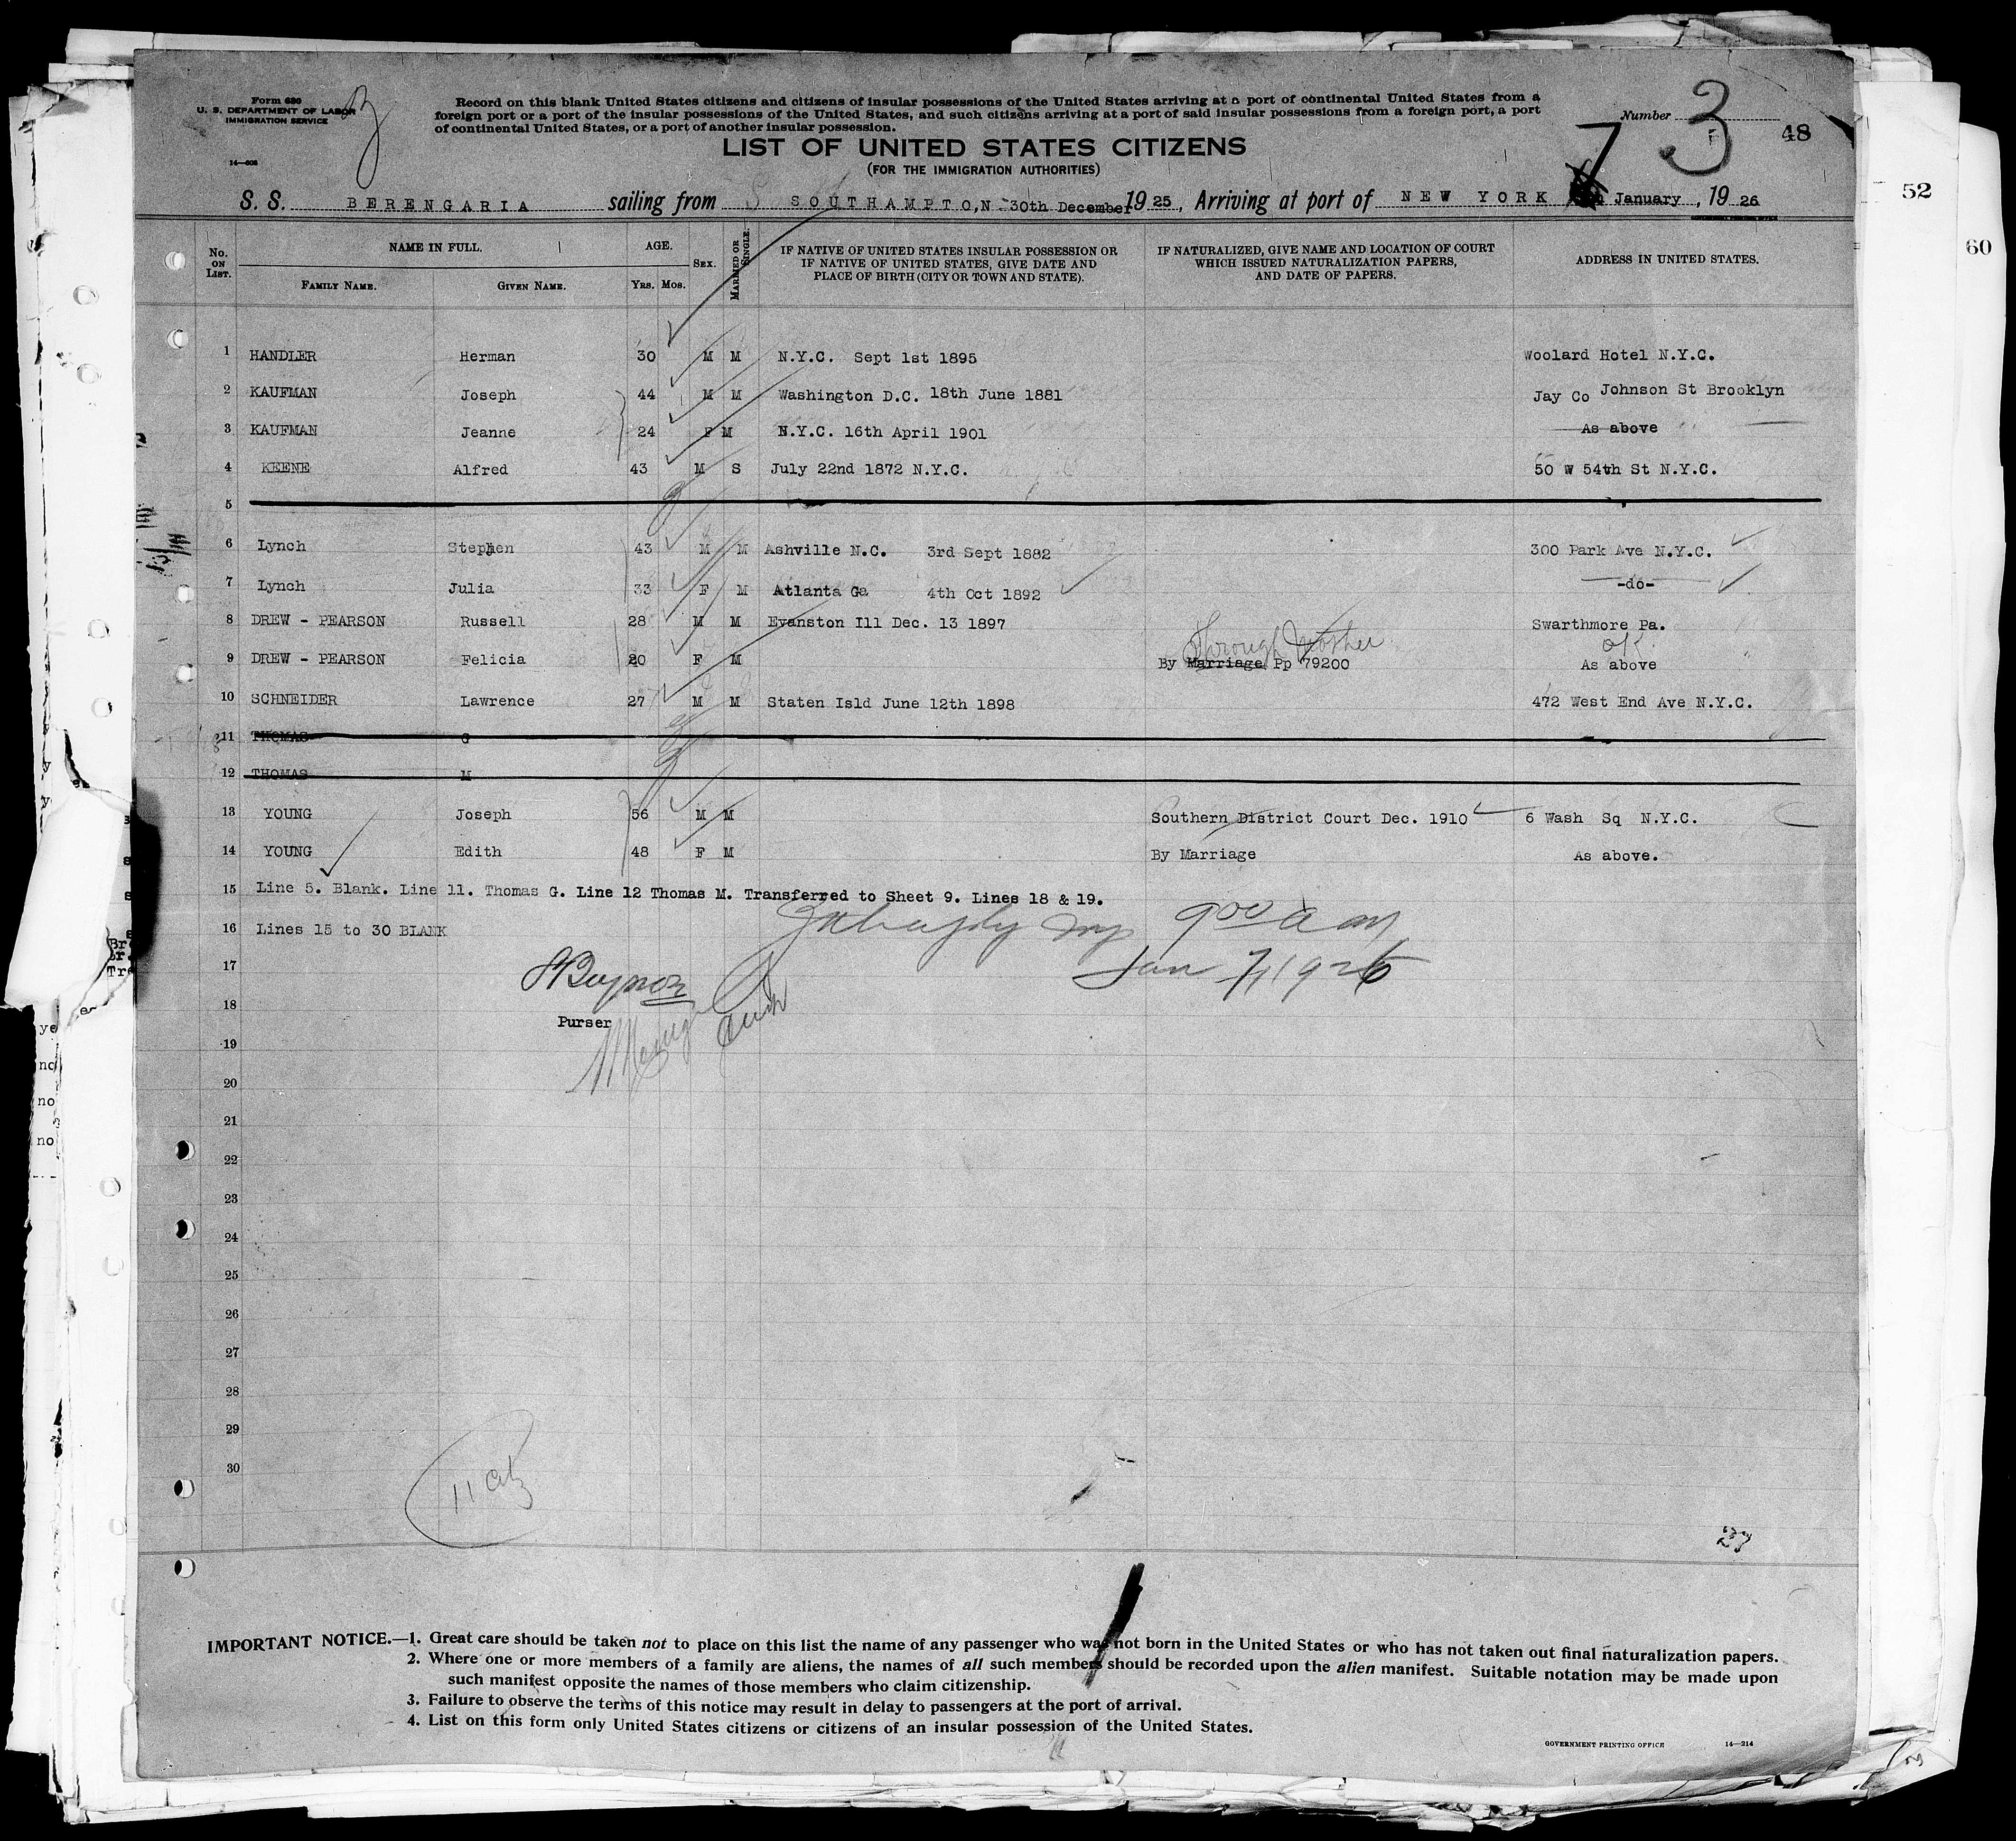 Form 630
U. S. DEPARTMENT OF LABOR
IMMIGRATION SERVICE
14—608
3
Record on this blank United States citizens and citizens of insular possessions of the United States arriving at a port of continental United States from a
foreign port or a port of the insular possessions of the United States, and such citizens arriving at a port of said insular possessions from a foreign port, a port
of continental United States, or a port of another insular possession.
Number 3
48
52
60
LIST OF UNITED STATES CITIZENS
(FOR THE IMMIGRATION AUTHORITIES)
S. S. BERENGARIA sailing from SOUTHAMPTON, 30th December 1925, Arriving at port of NEW YORK 7 January, 1926
No. ON LIST. NAME IN FULL. AGE. SEX. MARRIED OR SINGLE. IF NATIVE OF UNITED STATES INSULAR POSSESSION OR IF NATIVE OF UNITED STATES, GIVE DATE AND PLACE OF BIRTH (CITY OR TOWN AND STATE). IF NATURALIZED, GIVE NAME AND LOCATION OF COURT WHICH ISSUED NATURALIZATION PAPERS, AND DATE OF PAPERS. ADDRESS IN UNITED STATES.
FAMILY NAME. GIVEN NAME. YRS. MOS.
1 HANDLER Herman 30 M M N.Y.C. Sept 1st 1895 Woolard Hotel N.Y.C.
2 KAUFMAN Joseph 44 M M Washington D.C. 18th June 1881 Jay Co Johnson St Brooklyn
3 KAUFMAN Jeanne 24 F M N.Y.C. 16th April 1901 As above
4 KEENE Alfred 43 M S July 22nd 1872 N.Y.C. 50 W 54th St N.Y.C.
5
6 Lynch Stephen 43 M M Ashville N.C. 3rd Sept 1882 300 Park Ave N.Y.C.
7 Lynch Julia 33 F M Atlanta Ga 4th Oct 1892 -do-
8 DREW - PEARSON Russell 28 M M Evanston Ill Dec. 13 1897 Swarthmore Pa.
Through Mother OK
9 DREW - PEARSON Felicia 20 F M By Marriage Pp 79200 As above
10 SCHNEIDER Lawrence 27 M M Staten Isld June 12th 1898 472 West End Ave N.Y.C.
11 THOMAS G
12 THOMAS M
13 YOUNG Joseph 56 M M Southern District Court Dec. 1910 6 Wash Sq N.Y.C.
14 YOUNG Edith 48 F M By Marriage As above.
15 Line 5. Blank. Line 11. Thomas G. Line 12 Thomas M. Transferred to Sheet 9. Lines 18 & 19.
16 Lines 15 to 30 BLANK
9 00 a m
17 Jan 7/1926
18
Purser
19
20
21
22
23
24
25
26
27
28
29
30
27
IMPORTANT NOTICE.—1. Great care should be taken not to place on this list the name of any passenger who was not born in the United States or who has not taken out final naturalization papers.
2. Where one or more members of a family are aliens, the names of all such members should be recorded upon the alien manifest. Suitable notation may be made upon
such manifest opposite the names of those members who claim citizenship.
3. Failure to observe the terms of this notice may result in delay to passengers at the port of arrival.
4. List on this form only United States citizens or citizens of an insular possession of the United States.
GOVERNMENT PRINTING OFFICE 14—214